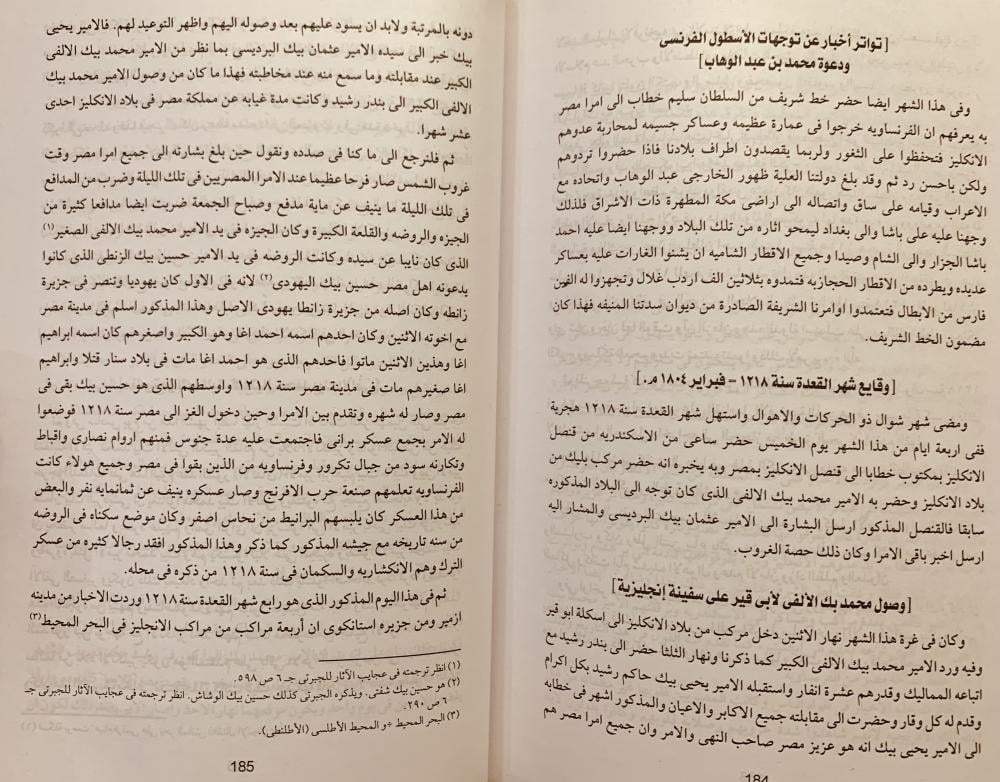 [تواتر أخبار عن توجهات الأسطول الفرنسى
ودعوة محمد بن عبد الوهاب]
وفى هذا الشهر ايضا حضر خط شريف من السلطان سليم خطاب الى امرا مصر
به يعرفهم ان الفرنساويه خرجوا فى عمارة عظيمه وعساكر جسيمه لمحاربة عدوهم
الانكليز فتحفظوا على الثغور ولربما يقصدون اطراف بلادنا فاذا حضروا تردوهم
ولكن باحسن رد ثم وقد بلغ دولتنا العلية ظهور الخارجى عبد الوهاب واتحاده مع
الاعراب وقيامه على ساق واتصاله الى اراضى مكة المطهرة ذات الاشراق فلذلك
وجهنا عليه على باشا والى بغداد ليمحو اثاره من تلك البلاد ووجهنا ايضا عليه احمد
باشا الجزار والى الشام وصيدا وجميع الاقطار الشاميه ان يشنوا الغارات عليه بعساكر
عديده ويطرده من الاقطار الحجازيه فتمدوه بثلاثين الف اردب غلال وتجهزوا له الفين
فارس من الأبطال فتعتمدوا اوامرنا الشريفة الصادرة من ديوان سدتنا المنيفه فهذا كان
مضمون الخط الشريف.
[وقايع شهر القعدة سنة ١٢١٨ – فبراير ١٨٠٤ م.]
ومضى شهر شوال ذو الحركات والاهوال واستهل شهر القعدة سنة ١٢١٨ هجرية
ففى اربعة ايام من هذا الشهر يوم الخميس حضر ساعى من الاسكندريه من قنصل
الانكليز بمكتوب خطابا الى قنصل الانكليز بمصر وبه يخبره انه حضر مركب بليك من
بلاد الانكليز وحضر به الامير محمد بيك الالفى الذى كان توجه الى البلاد المذكوره
سابقا فالقنصل المذكور ارسل البشارة الى الامير عثمان بيك البرديسى والمشار اليه
ارسل اخبر باقى الامرا وكان ذلك حصة الغروب.
[وصول محمد بك الألفى لأبى قير على سفينة إنجليزية]
وكان فى غرة هذا الشهر نهار الاثنين دخل مركب من بلاد الانكليز الى اسكلة ابو قير
وفيه ورد الامير محمد بيك الالفى الكبير كما ذكرنا ونهار الثلثا حضر الى بندر رشيد مع
اتباعه المماليك وقدرهم عشرة انفار واستقبله الامير يحيى بيك حاكم رشيد بكل اكرام
وقدم له كل وقار وحضرت الى مقابلته جميع الاكابر والاعيان والمذكور اشهر فى خطابه
الى الامير يحيى بيك انه هو عزيز مصر صاحب النهى والامر وان جميع امرا مصر هم
184
دونه بالمرتبة ولابد ان يسود عليهم بعد وصوله اليهم واظهر التوعيد لهم. فالامير يحيى
بيك خبر الى سيده الامير عثمان بيك البرديسى بما نظر من الامير محمد بيك الالفى
الكبير عند مقابلته وما سمع منه عند مخاطبته فهذا ما كان من وصول الامير محمد بيك
الالفى الكبير الى بندر رشيد وكانت مدة غيابه عن مملكة مصر فى بلاد الانكليز احدى
عشر شهرا.
ثم فلنرجع الى ما كنا فى صدده ونقول حين بلغ بشارته الى جميع امرا مصر وقت
غروب الشمس صار فرحا عظيما عند الامرا المصريين فى تلك الليلة وضرب من المدافع
فى تلك الليلة ما ينيف عن ماية مدفع وصباح الجمعة ضربت ايضا مدافعا كثيرة من
الجيزه والروضه والقلعة الكبيرة وكان الجيزه فى يد الامير محمد بيك الالفى الصغير(١)
الذى كان نايبا عن سيده وكانت الروضه فى يد الامير حسين بيك الزنطى الذى كانوا
يدعونه اهل مصر حسين بيك اليهودى(٢) لانه فى الاول كان يهوديا وتنصر فى جزيرة
زانطه وكان اصله من جزيرة زانطا يهودى الاصل وهذا المذكور اسلم فى مدينة مصر
مع اخوته الاثنين وكان احدهم اسمه احمد اغا وهو الكبير واصغرهم كان اسمه ابراهيم
اغا وهذين الاثنين ماتوا فاحدهم الذى هو احمد اغا مات فى بلاد سنار قتلا وابراهيم
اغا صغيرهم مات فى مدينة مصر سنة ١٢١٨ واوسطهم الذى هو حسين بيك بقى فى
مصر وصار له شهره وتقدم بين الامرا وحين دخول الغز الى مصر سنة ١٢١٨ فوضعوا
له الامر بجمع عسكر برانى فاجتمعت عليه عدة جنوس فمنهم اروام نصارى واقباط
وتكارنه سود من جبال تكرور وفرنساويه من الذين بقوا فى مصر وجميع هولاء كانت
الفرنساويه تعلمهم صنعة حرب الافرنج وصار عسكره ينيف عن ثمانمايه نفر والبعض
من هذا العسكر كان يلبسهم البرانيط من نحاس اصفر وكان موضع سكناه فى الروضه
من سنه تاريخه مع جيشه المذكور كما ذكر وهذا المذكور افقد رجالا كثيره من عسكر
الترك وهم الانكشاريه والسكمان فى سنة ١٢١٨ من ذكره فى محله.
ثم فى هذا اليوم المذكور الذى هو رابع شهر القعدة سنة ١٢١٨ وردت الاخبار من مدينه
ازمير ومن جزيره استانكوى ان أربعة مراكب من مراكب الانجليز فى البحر المحيط(٣)
(١) انظر ترجمته فى عجايب الآثار للجبرتى جـ ٦ ص ٥٩٨.
(٢) هو حسين بيك شفتى. ويذكره الجبرتى كذلك حسين بيك الوشاش. انظر ترجمته فى عجايب الآثار للجبرتى جـ
٦ ص ٢٩٠.
(٣) البحر المحيط هو المحيط الأطلسى (الأطلنطى).
185